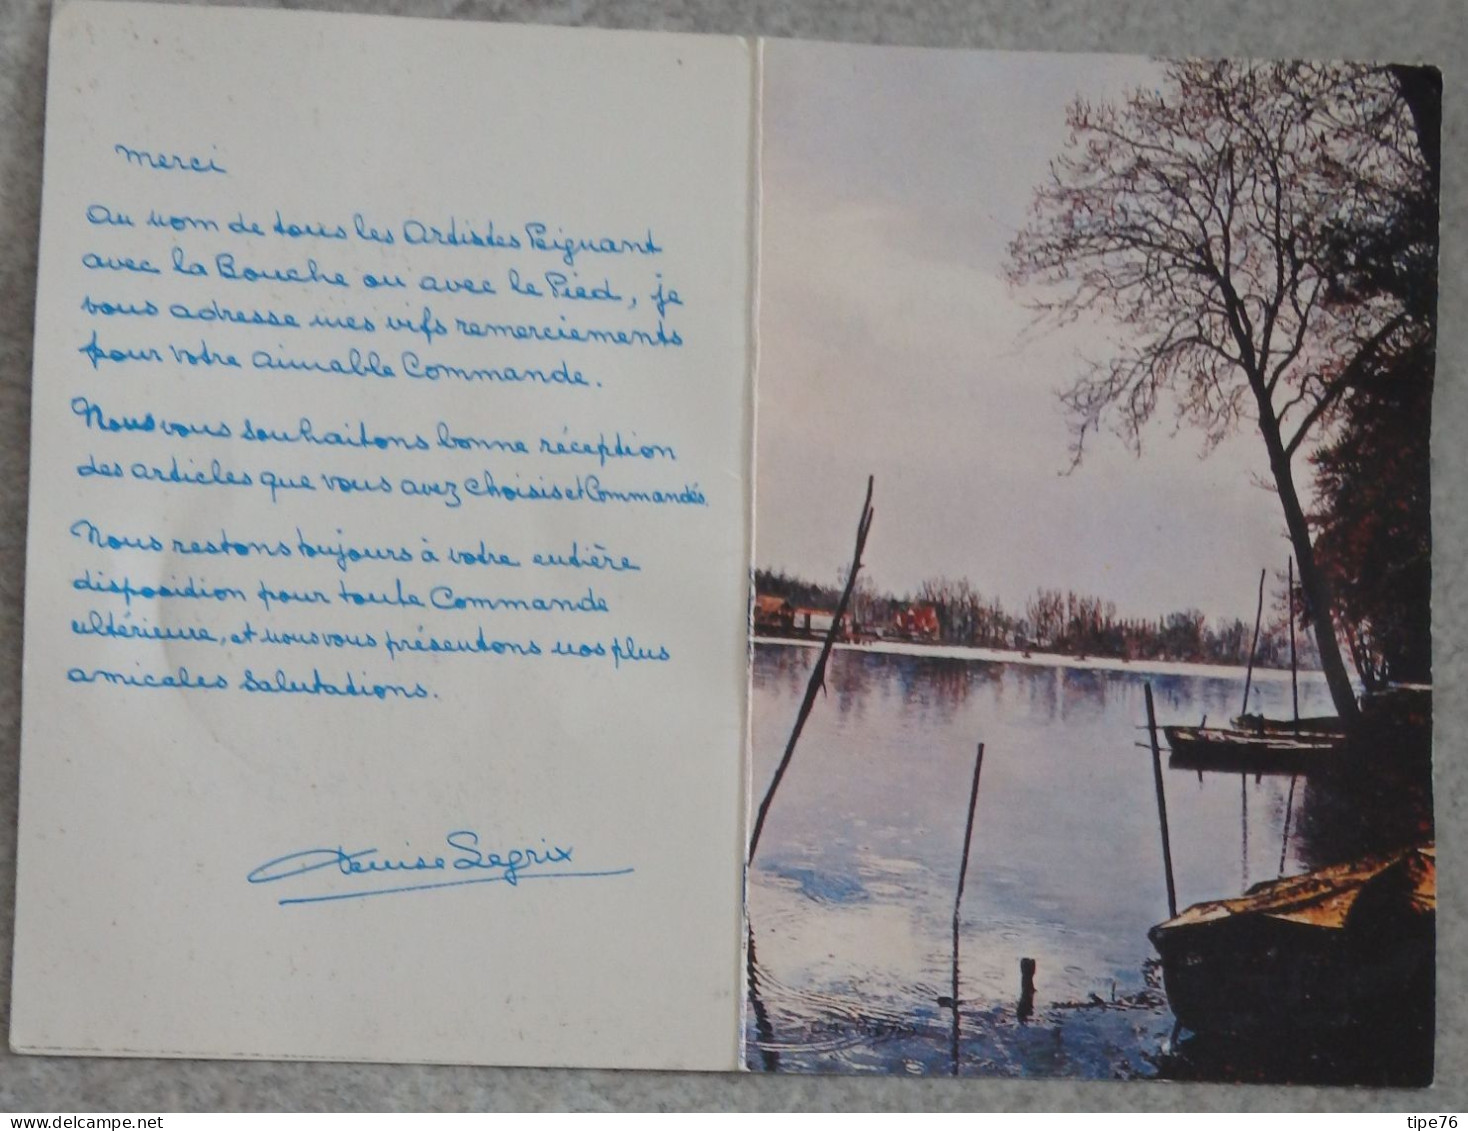 Merci
Au nom de tous les Artistes Peignant
avec la Bouche ou avec le Pied, je
vous adresse mes vifs remerciements
pour votre aimable Commande.
Nous vous souhaitons bonne réception
des articles que vous avez choisis et Commandés.
Nous restons toujours à votre entière
disposition pour toute Commande
ultérieure, et nous vous présentons nos plus
amicales salutations.
Denise Legrix
tipe76